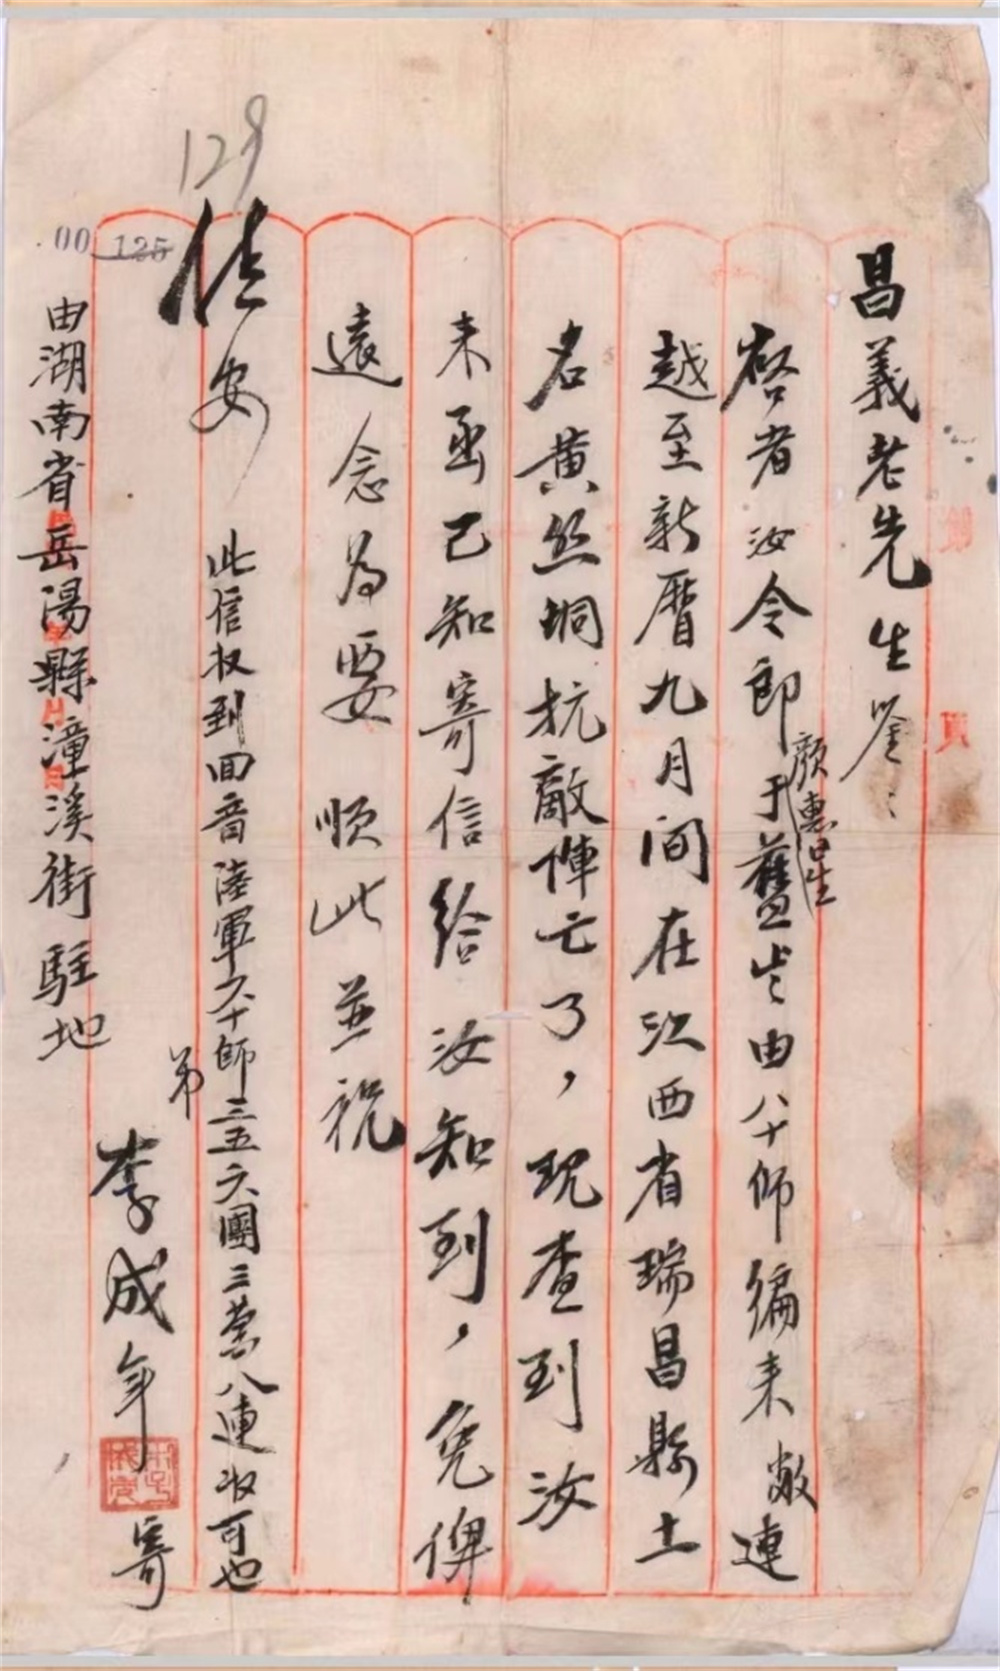 昌義老先生鉴：
啓者汝令郎顏惠星于舊歲由八十師编来敝連
越至新曆九月间在江西省瑞昌縣土
名黄丝垌抗敵陣亡了，现查到汝
来函已知寄信给汝知到，免俾
遠念為要順此並祝
佳安
此信收到回音陸軍六十師三五六團三营八連收可也
弟李成年寄
由湖南省岳陽縣潼溪街駐地
129
00 125